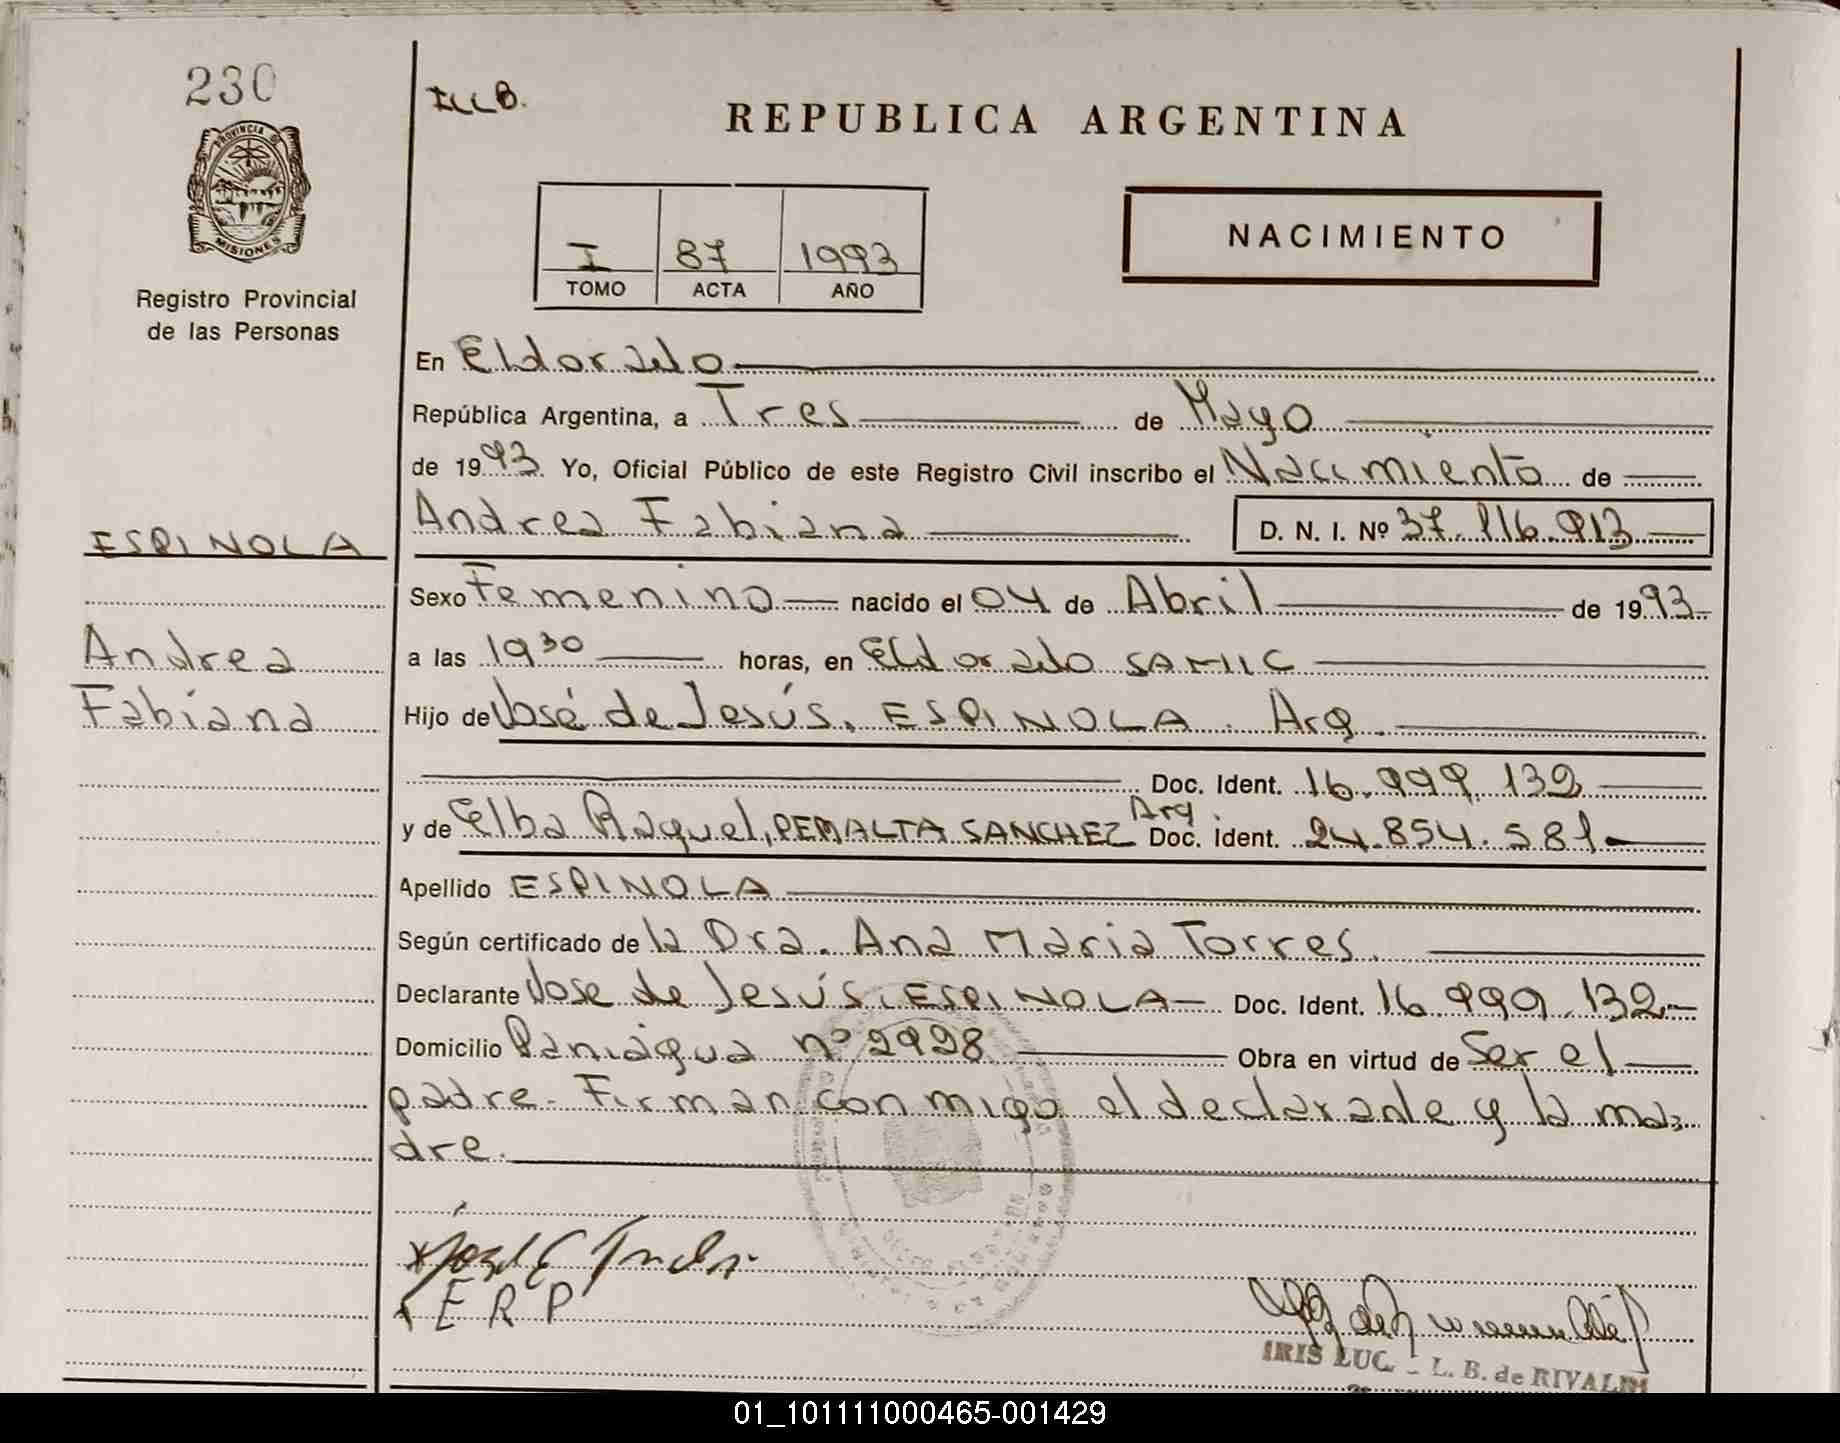 230
PROVINCIA DE
MISIONES
Registro Provincial
de las Personas
ILLB.
REPUBLICA ARGENTINA
I 87 1993
TOMO ACTA AÑO
NACIMIENTO
En Eldorado
República Argentina, a Tres de Mayo
de 1993 Yo, Oficial Público de este Registro Civil inscribo el Nacimiento de
Andrea Fabiana D. N. I. Nº 37.116.913
ESPINOLA
Andrea
Fabiana
Sexo Femenino nacido el 04 de Abril de 1993
a las 19 30 horas, en Eldorado SAMIC
Hijo de José de Jesús, ESPINOLA. Arg.
Doc. Ident. 16.999.132
y de Elba Raquel, PERALTA SANCHEZ Arg. Doc. ident. 24.854.581
Apellido ESPINOLA
Según certificado de la Dra. Ana Maria Torres.
Declarante Jose de Jesús, ESPINOLA Doc. Ident. 16.999.132
Domicilio Paniagua nº 2928 Obra en virtud de Ser el
padre. Firman con migo el declarante y la ma
dre.
E R P
IRIS LUC L. B. de RIVALDI
01_101111000465-001429